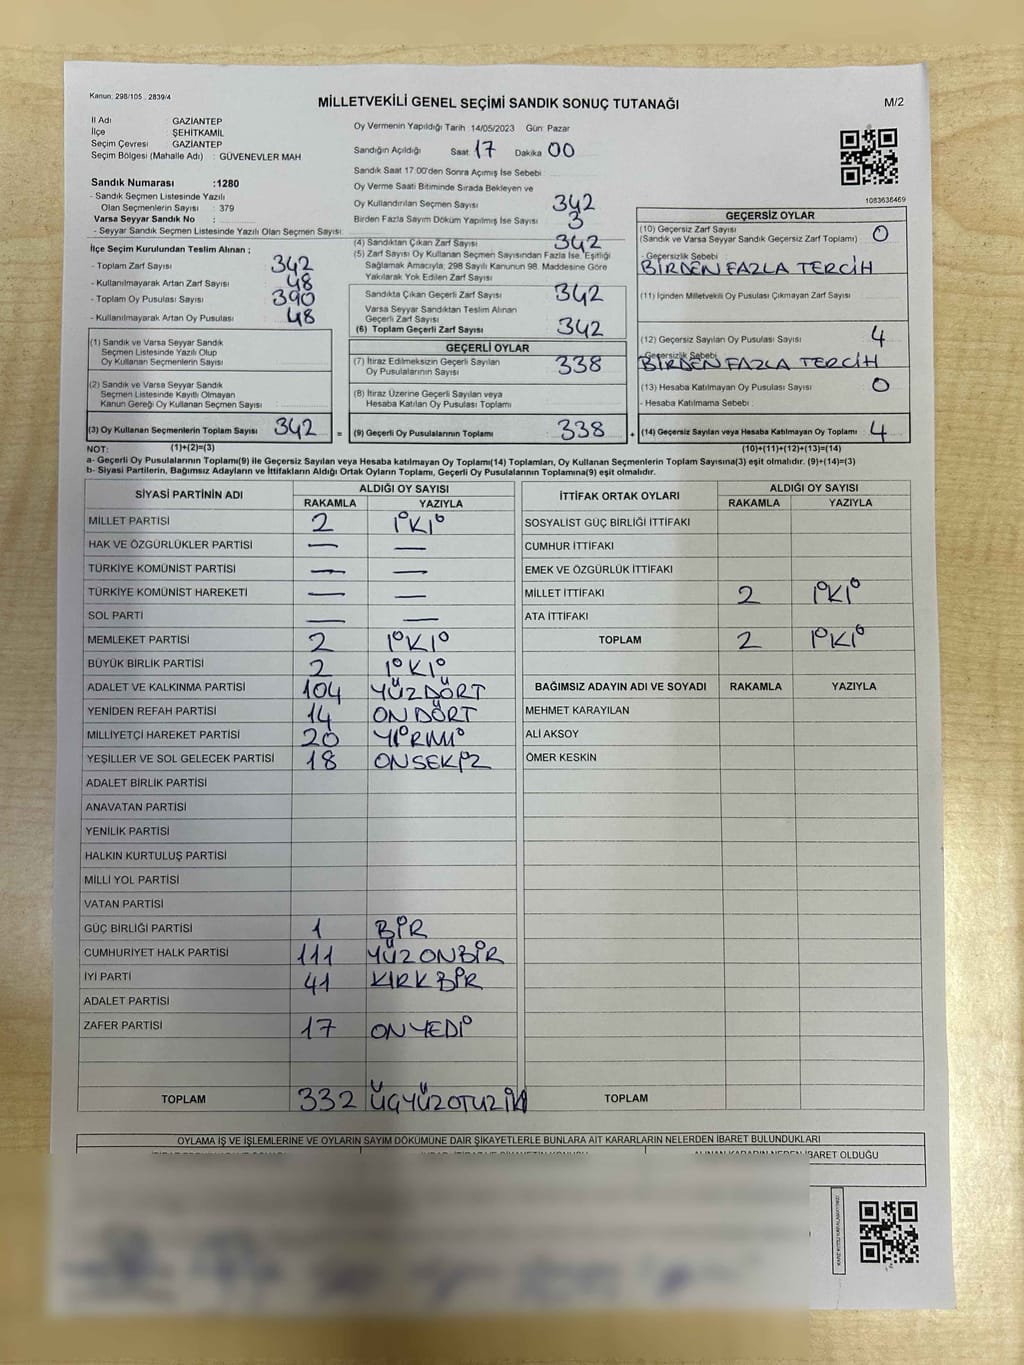 Kanun: 298/105 , 2839/4
MİLLETVEKİLİ GENEL SEÇİMİ SANDIK SONUÇ TUTANAĞI
M/2
İl Adı : GAZİANTEP
İlçe : ŞEHİTKAMİL
Seçim Çevresi : GAZİANTEP
Seçim Bölgesi (Mahalle Adı) : GÜVENEVLER MAH.
Sandık Numarası :1280
- Sandık Seçmen Listesinde Yazılı
Olan Seçmenlerin Sayısı : 379
Varsa Seyyar Sandık No :
- Seyyar Sandık Seçmen Listesinde Yazılı Olan Seçmen Sayısı:
İlçe Seçim Kurulundan Teslim Alınan ;
- Toplam Zarf Sayısı 342
- Kullanılmayarak Artan Zarf Sayısı 48
- Toplam Oy Pusulası Sayısı 390
- Kullanılmayarak Artan Oy Pusulası 48
(1) Sandık ve Varsa Seyyar Sandık
Seçmen Listesinde Yazılı Olup
Oy Kullanan Seçmenlerin Sayısı
(2) Sandık ve Varsa Seyyar Sandık
Seçmen Listesinde Kayıtlı Olmayan
Kanun Gereği Oy Kullanan Seçmen Sayısı :
(3) Oy Kullanan Seçmenlerin Toplam Sayısı 342
Oy Vermenin Yapıldığı Tarih 14/05/2023 Gün: Pazar
Sandığın Açıldığı Saat 17 Dakika 00
Sandık Saat 17:00'den Sonra Açımış İse Sebebi :
Oy Verme Saati Bitiminde Sırada Bekleyen ve
Oy Kullandırılan Seçmen Sayısı 342
Birden Fazla Sayım Döküm Yapılmış İse Sayısı 3
(4) Sandıktan Çıkan Zarf Sayısı 342
(5) Zarf Sayısı Oy Kullanan Seçmen Sayısından Fazla İse, Eşitliği
Sağlamak Amacıyla; 298 Sayılı Kanunun 98. Maddesine Göre
Yakılarak Yok Edilen Zarf Sayısı
Sandıkta Çıkan Geçerli Zarf Sayısı 342
Varsa Seyyar Sandıktan Teslim Alınan
Geçerli Zarf Sayısı
(6) Toplam Geçerli Zarf Sayısı 342
GEÇERLİ OYLAR
(7) İtiraz Edilmeksizin Geçerli Sayılan
Oy Pusulalarının Sayısı 338
(8) İtiraz Üzerine Geçerli Sayılan veya
Hesaba Katılan Oy Pusulası Toplamı
= (9) Geçerli Oy Pusulalarının Toplamı 338
1083638469
GEÇERSİZ OYLAR
(10) Geçersiz Zarf Sayısı
(Sandık ve Varsa Seyyar Sandık Geçersiz Zarf Toplamı) 0
- Geçersizlik Sebebi
BİRDEN FAZLA TERCİH
(11) İçinden Milletvekili Oy Pusulası Çıkmayan Zarf Sayısı
(12) Geçersiz Sayılan Oy Pusulası Sayısı 4
-Geçersizlik Sebebi
BİRDEN FAZLA TERCİH
(13) Hesaba Katılmayan Oy Pusulası Sayısı 0
- Hesaba Katılmama Sebebi :
+ (14) Geçersiz Sayılan veya Hesaba Katılmayan Oy Toplamı 4
NOT: (1)+(2)=(3)
(10)+(11)+(12)+(13)=(14)
a- Geçerli Oy Pusulalarının Toplamı(9) ile Geçersiz Sayılan veya Hesaba katılmayan Oy Toplamı(14) Toplamları, Oy Kullanan Seçmenlerin Toplam Sayısına(3) eşit olmalıdır. (9)+(14)=(3)
b- Siyasi Partilerin, Bağımsız Adayların ve İttifakların Aldığı Oyların Toplamı, Geçerli Oy Pusulalarının Toplamına(9) eşit olmalıdır.
SİYASİ PARTİNİN ADI ALDIĞI OY SAYISI
RAKAMLA YAZIYLA
MİLLET PARTİSİ 2 İKİ
HAK VE ÖZGÜRLÜKLER PARTİSİ — —
TÜRKİYE KOMÜNİST PARTİSİ — —
TÜRKİYE KOMÜNİST HAREKETİ — —
SOL PARTİ — —
MEMLEKET PARTİSİ 2 İKİ
BÜYÜK BİRLİK PARTİSİ 2 İKİ
ADALET VE KALKINMA PARTİSİ 104 YÜZDÖRT
YENİDEN REFAH PARTİSİ 14 ONDÖRT
MİLLİYETÇİ HAREKET PARTİSİ 20 YİRMİ
YEŞİLLER VE SOL GELECEK PARTİSİ 18 ONSEKİZ
ADALET BİRLİK PARTİSİ
ANAVATAN PARTİSİ
YENİLİK PARTİSİ
HALKIN KURTULUŞ PARTİSİ
MİLLİ YOL PARTİSİ
VATAN PARTİSİ
GÜÇ BİRLİĞİ PARTİSİ 1 BİR
CUMHURİYET HALK PARTİSİ 111 YÜZONBİR
İYİ PARTİ 41 KIRKBİR
ADALET PARTİSİ
ZAFER PARTİSİ 17 ONYEDİ
TOPLAM 332
İTTİFAK ORTAK OYLARI ALDIĞI OY SAYISI
RAKAMLA YAZIYLA
SOSYALİST GÜÇ BİRLİĞİ İTTİFAKI
CUMHUR İTTİFAKI
EMEK VE ÖZGÜRLÜK İTTİFAKI
MİLLET İTTİFAKI 2 İKİ
ATA İTTİFAKI
TOPLAM 2 İKİ
BAĞIMSIZ ADAYIN ADI VE SOYADI RAKAMLA YAZIYLA
MEHMET KARAYILAN
ALİ AKSOY
ÖMER KESKİN
TOPLAM
OYLAMA İŞ VE İŞLEMLERİNE VE OYLARIN SAYIM DÖKÜMÜNE DAİR ŞİKAYETLERLE BUNLARA AİT KARARLARIN NELERDEN İBARET BULUNDUKLARI
ALINAN KARARIN NEDEN İBARET OLDUĞU